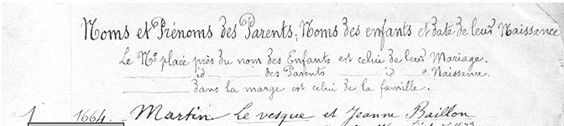 Noms et Prénoms des Parents; Noms des enfants et date de leur Naissance
Le No placé près du nom des Enfants est celui de leur Mariage.
id des Parents id Naissance.
dans la marge est celui de la famille.
1 1664. Martin le vesque et Jeanne Baillon